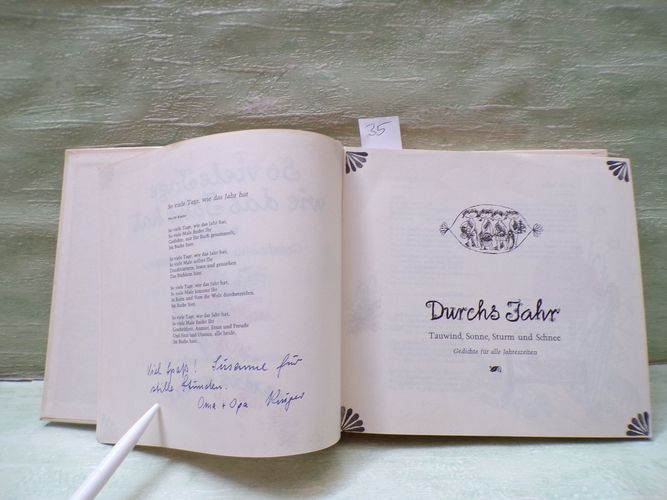 35
So viele Tage, wie das Jahr hat
So viele Tage, wie das Jahr hat,
So viele Male findet Ihr
Gedichte, mir für Euch gesammelt,
Im Buche hier.
So viele Tage, wie das Jahr hat,
So viele Male sollret Ihr
Durchblättern, lesen und genießen
Das Büchlein hier.
So viele Tage, wie das Jahr hat,
So viele Male könntet Ihr
in Reim und Vers die Welt durchstreifen
Im Buche hier.
So viele Tage, wie das Jahr hat,
So viele Male findet Ihr
Und Sinn und Unsinn, alle beide,
Im Buche hier.
Viel Spaß! Susanne für
stille Stunden.
Oma + Opa
Durchs Jahr
Tauwind, Sonne, Sturm und Schnee
Gedichte für alle Jahreszeiten